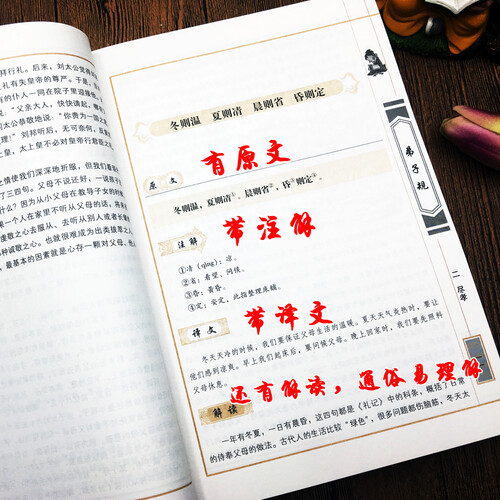 拜行礼。后来，刘太公觉得
礼有失皇帝的尊严。于是，
的仆人一同在院子里迎接
“父亲大人，快快请起，
太公恭敬地说：“你贵为一国之
理！”刘邦听后，无可奈何，
上皇，太上皇不必对皇帝行君臣之
之情使我们深深地折服，但我们
了三四句。父母不说还好，一说孩子
什么？因为从小父母在教导子女的时
果一个人在家里不听从父母的话，
虔敬之心去服从、去听从别人或者长辈
种诚敬之心。也就很难成为出类拔萃之
，最基本的因素就是心存一颗对父母、他
冬则温 夏则清 晨则省 昏则定
有原文
原文
冬则温，夏则清①。晨则省②，昏③则定④。
带注解
注解
①清（qìng）：凉。
②省：看望、问候。
③昏：黄昏。
④定：安定，此指整理床铺。
带译文
译文
冬天天冷的时候，我们要保证父母生活的温暖。夏天天气炎热时，要让
他们感到凉爽。早上我们起床后，要问候父母。晚上回家时，我们要先照料
父母休息。
还有解读，通俗易理解
解读
一年有冬夏，一日有晨昏，这四句都是《礼记》中的科条，概括了日常
的侍奉父母的做法。古代人的生活比较“绿色”，很多问题都伤脑筋，冬天太
弟子规
二 尽孝